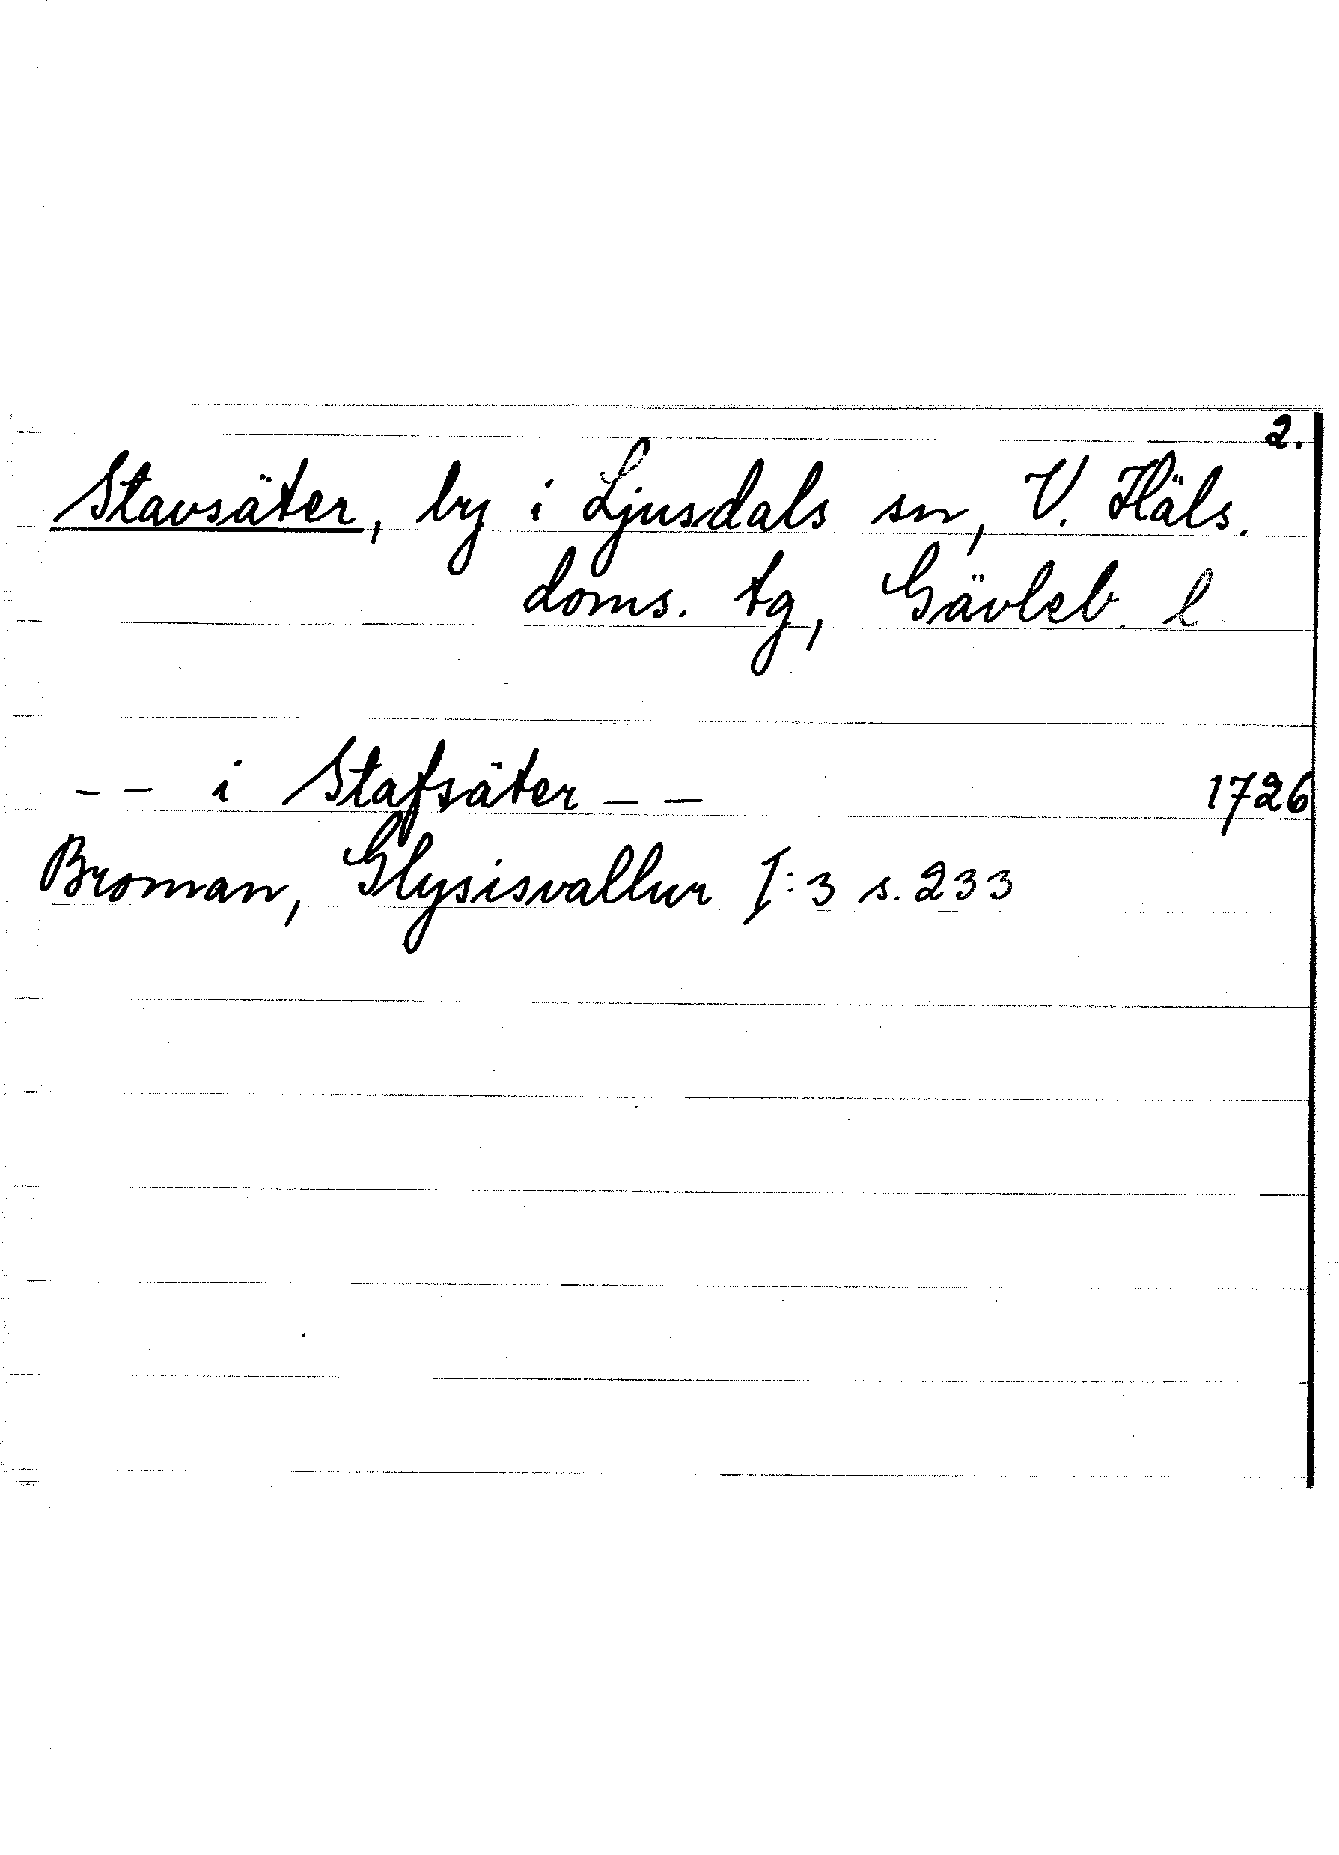 2.
Stavsäter, by i Ljusdals sn, V. Häls.
doms. tg, Gävleb. l
-- i Stafsäter -- 1726
Broman, Glysisvallur I:3 s. 233